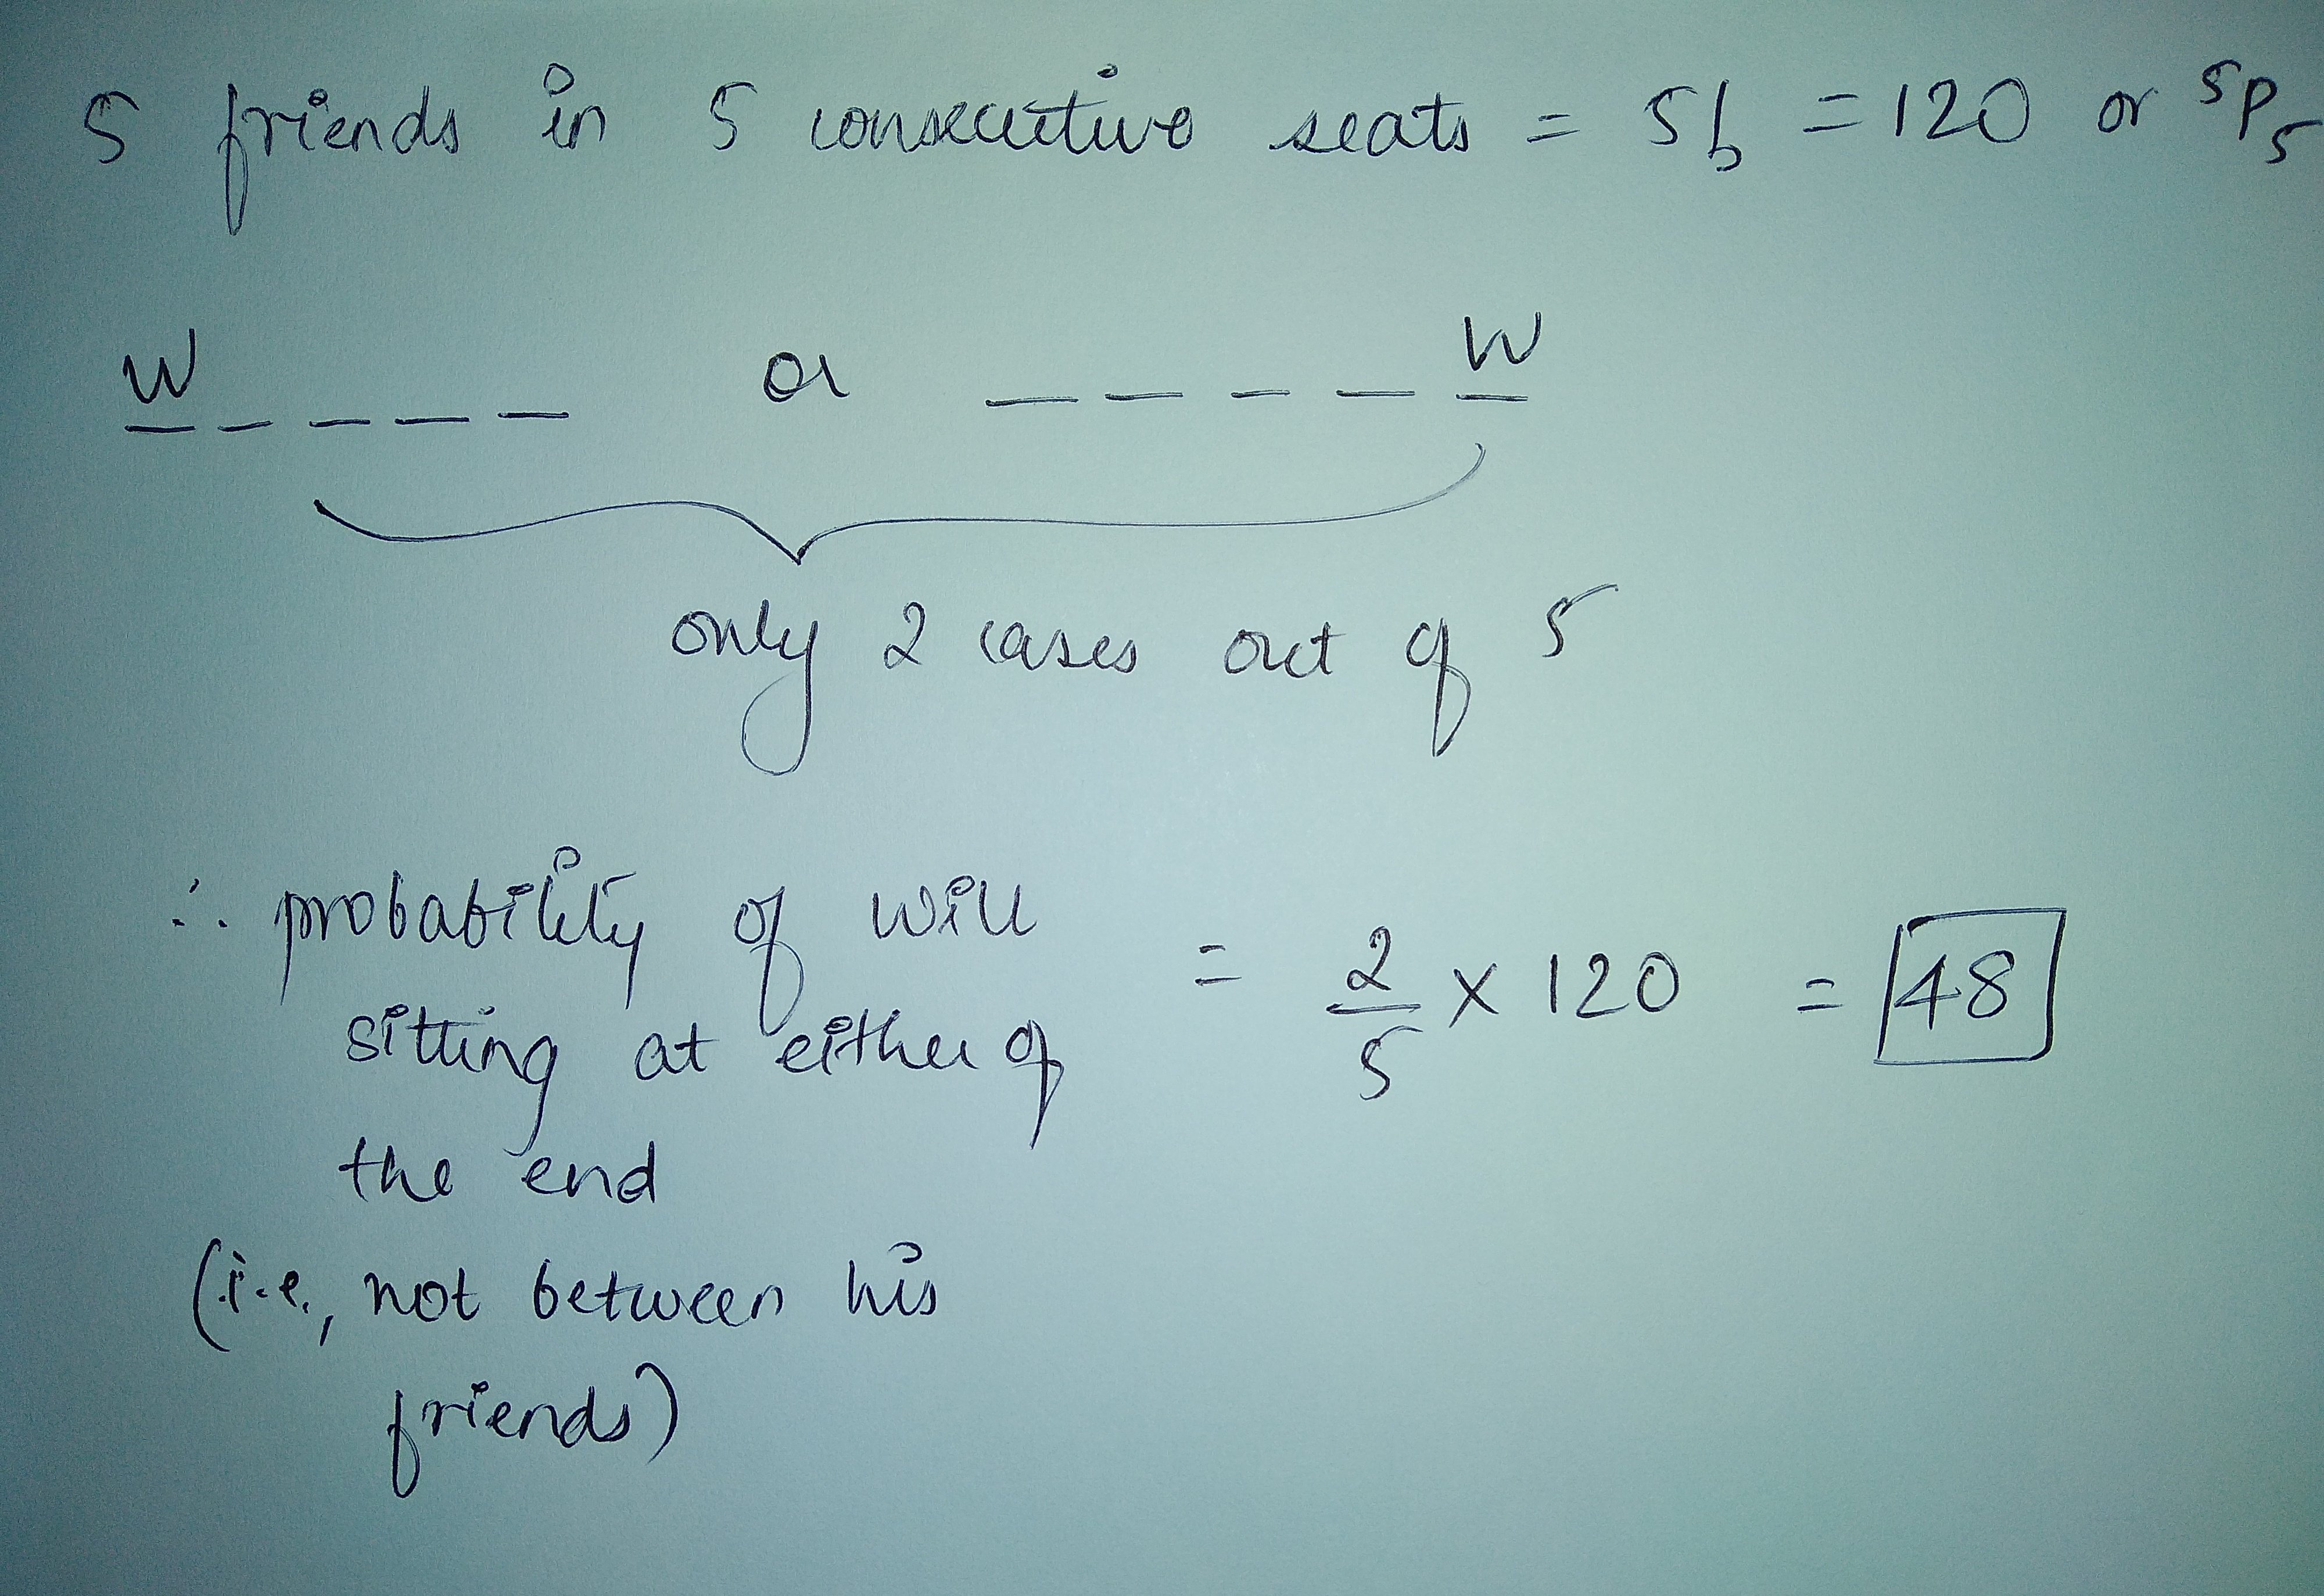 5 friends in 5 consecutive seats = 5! = 120 or ⁵P₅
W _ _ _ _ or _ _ _ _ W
only 2 cases out of 5
∴ probability of Will
sitting at either of = 2/5 × 120 = 48
the end
(i.e., not between his
friends)